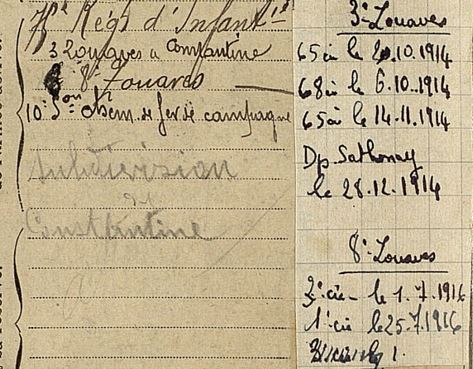 Régt d'Infant
3 Zouaves à Constantine
8e Zouares
10e Son Chem. de fer de campagne
subdivision
de
Constantine
3e Zouaves
65 cie le 2.10.1914
68 cie le 6.10.1914
65 cie le 14.11.1914
Dp Sathonay
le 28.12.1914
8e Zouaves
cie le 1.7.1916
1e cie le 25.7.1916